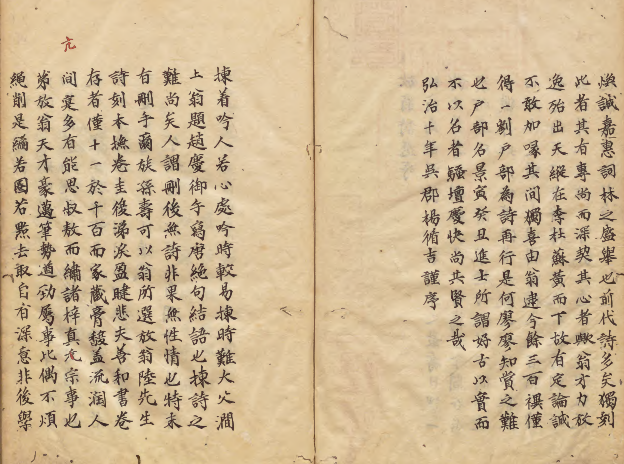 煥誠嘉惠詞林之盛舉也前代詩多矣獨刻
此者其有專尚而深契其心者歟翁才力放
逸殆出天縱在李杜蘇黃而下故有定論誠
不敢加喙其間獨喜由翁逮今餘三百禩僅
得一劉户部為詩再行是何廖廖知賞之難
也户部名景寅癸丑進士所謂好古以實而
不以名者騷壇慶快尚共賢之哉
弘治十年吳郡楊循吉謹序
揀着吟人若心處吟時較易揀時難大父澗
上翁題趙慶御手寫唐絶句結語也揀詩之
難尚矣人謂刪後無詩非果無性情也特未
有刪手爾族孫壽可以翁所選放翁陸先生
詩刻本撫卷圭復涕淚盈睫悲夫善和書卷
存者僅十一於千百而家藏膏馥盖流潤人
亢
間寔多有能思叔敖而繡諸梓真亢宗事也
第放翁天才豪邁筆勢遒勁屬事比偶不煩
繩削是編若圈若點去取自有深意非後學